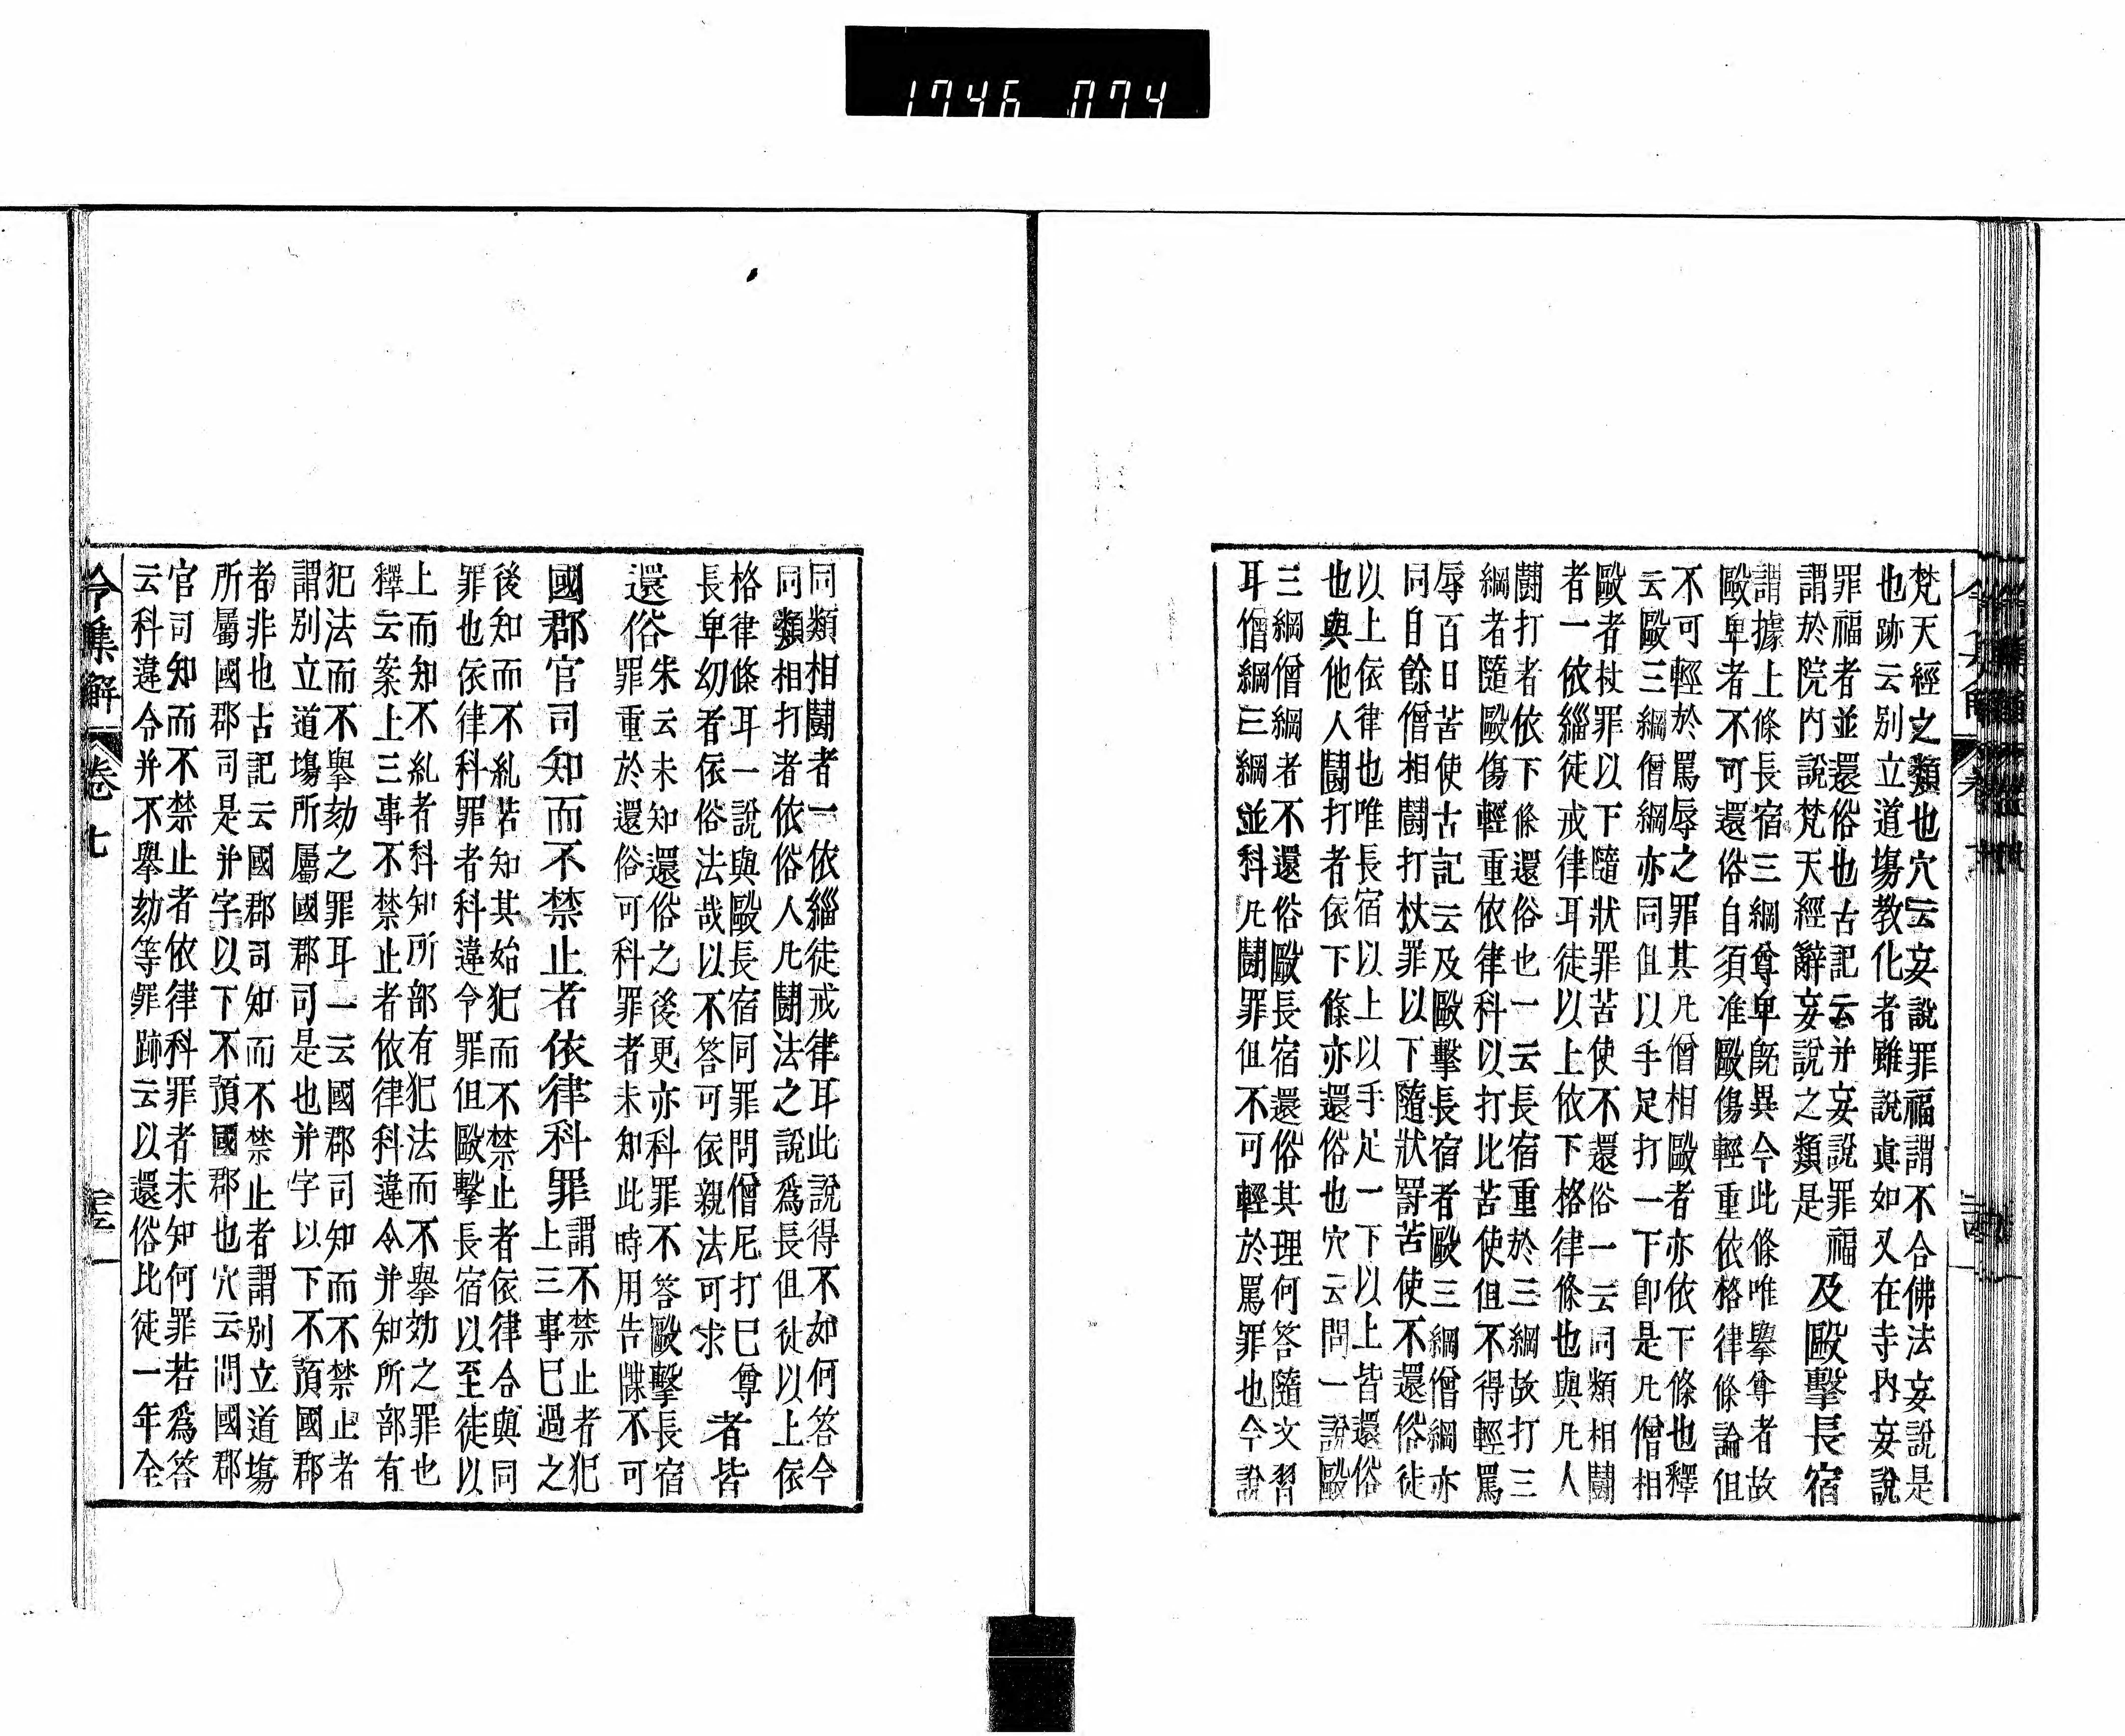 1746 074
梵天經之類也穴云妄說罪福謂不合佛法妄說是
也跡云别立道塲教化者雖說真如又在寺内妄說
罪福者並還俗也古記云并妄說罪福
謂於院内說梵天經辭妄說之類是
及毆擊長宿
謂據上條長宿三綱尊卑旣異今此條唯擧尊者故
毆卑者不可還俗自須准毆傷輕重依格律條論但
不可輕於罵辱之罪其凢僧相毆者亦依下條也釋
云毆三綱僧綱亦同但以手足打一下卽是凢僧相
毆者杖罪以下隨狀罪苦使不還俗一云同類相鬪
者一依緇徒戒律耳徒以上依下格律條也與凢人
鬪打者依下條還俗也一云長宿重於三綱故打三
綱者隨毆傷輕重依律科以打比苦使但不得輕罵
辱百日苦使古記云及毆擊長宿者毆三綱僧綱亦
同自餘僧相鬪打杖罪以下隨狀罸苦使不還俗徒
以上依律也唯長宿以上以手足一下以上皆還俗
也與他人鬪打者依下條亦還俗也穴云問一說毆
三綱僧綱者不還俗毆長宿還俗其理何答隨文習
耳僧綱三綱並科凢鬪罪但不可輕於罵罪也今說
同類相鬪者一依緇徒戒律耳此說得不如何答今
同類相打者依俗人凢鬪法之說爲長但徒以上依
格律條耳一說與毆長宿同罪問僧尼打巳尊
長卑幼者依俗法哉以不答可依親法可求
者皆
還俗
朱云未知還俗之後更亦科罪不答毆擊長宿
罪重於還俗可科罪者未知此時用告牒不可
國郡官司知而不禁止者依律科罪
謂不禁止者犯
上三事巳過之
後知而不糺若知其始犯而不禁止者依律合與同
罪也依律科罪者科違令罪但毆擊長宿以至徒以
上而知不糺者科知所部有犯法而不擧効之罪也
釋云案上三事不禁止者依律科違令并知所部有
犯法而不擧劾之罪耳一云國郡司知而不禁止者
謂别立道塲所屬國郡司是也并字以下不預國郡
者非也古記云國郡司知而不禁止者謂别立道塲
所屬國郡司是并字以下不預國郡也穴云問國郡
官司知而不禁止者依律科罪者未知何罪若爲答
云科違令并不擧劾等罪跡云以還俗比徒一年全
令集解 卷七